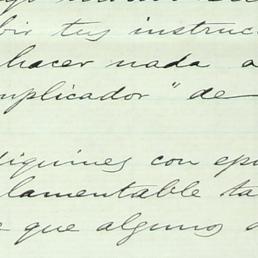 bir tus instruc
hacer nada a
mplicador" de
diquines con ep
lamentable ta
e que algunos d